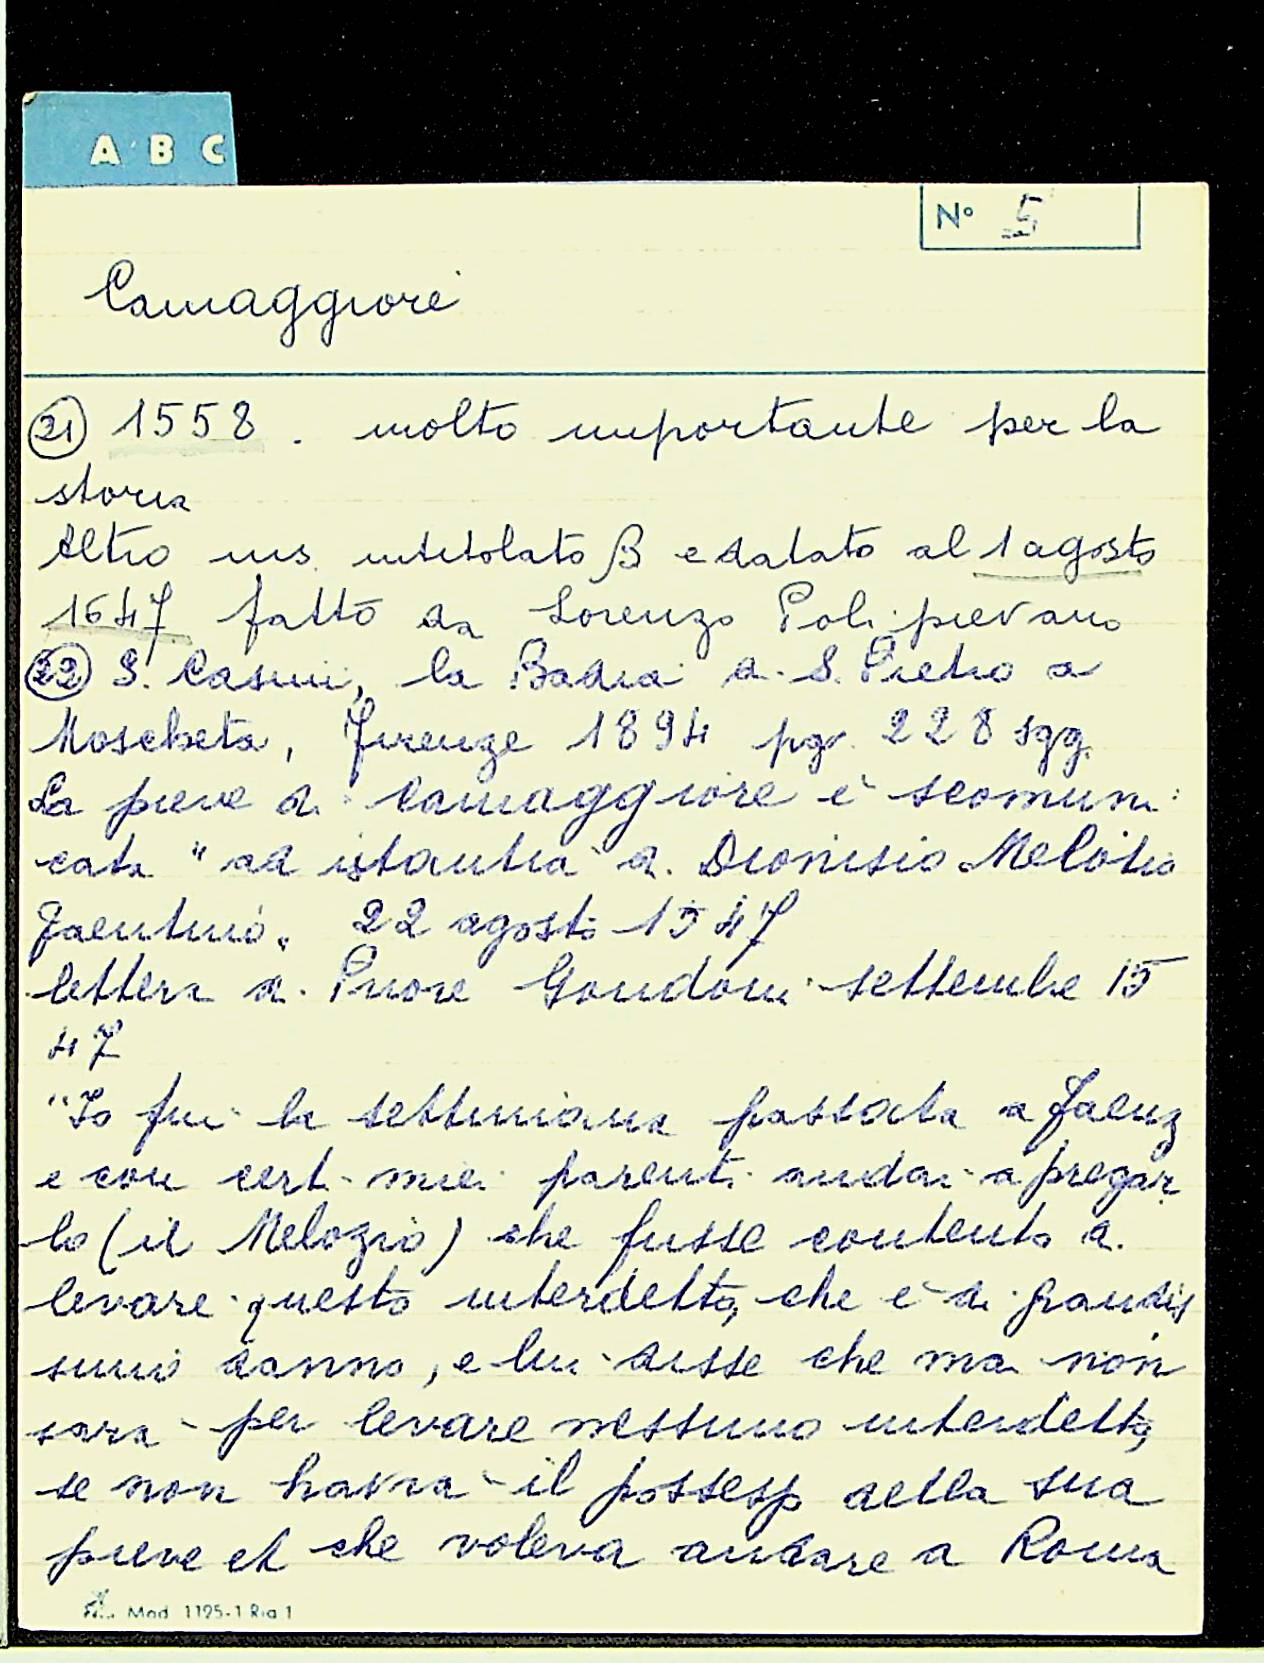 A B C
N° 5
Camaggiore
21 1558. molto importante per la
storia
Altro ms. intitolato B e datato al 1 agosto
1647 fatto da Lorenzo Poli pievano
22 S. Casini, la Badia di S. Pietro a
Moscheta, Firenze 1894 pg. 228 sgg.
La pieve di Camaggiore è scomuni
cata "ad istantia" di Dionisio Melotio
faentino. 22 agosto 1547
lettera di Priore Gondoni settembre 15
47
"Io fui la settimana passata a Faenz
e con certi miei parenti andai a pregar
lo (il Melozio) che fusse contento di
levare questo interdetto, che è di grandis
simo danno, e lui disse che mai non
sarà per levare nessuno interdetto,
se non havrà il possesso della sua
pieve et che voleva andare a Roma
Mod 1125-1 Rig 1